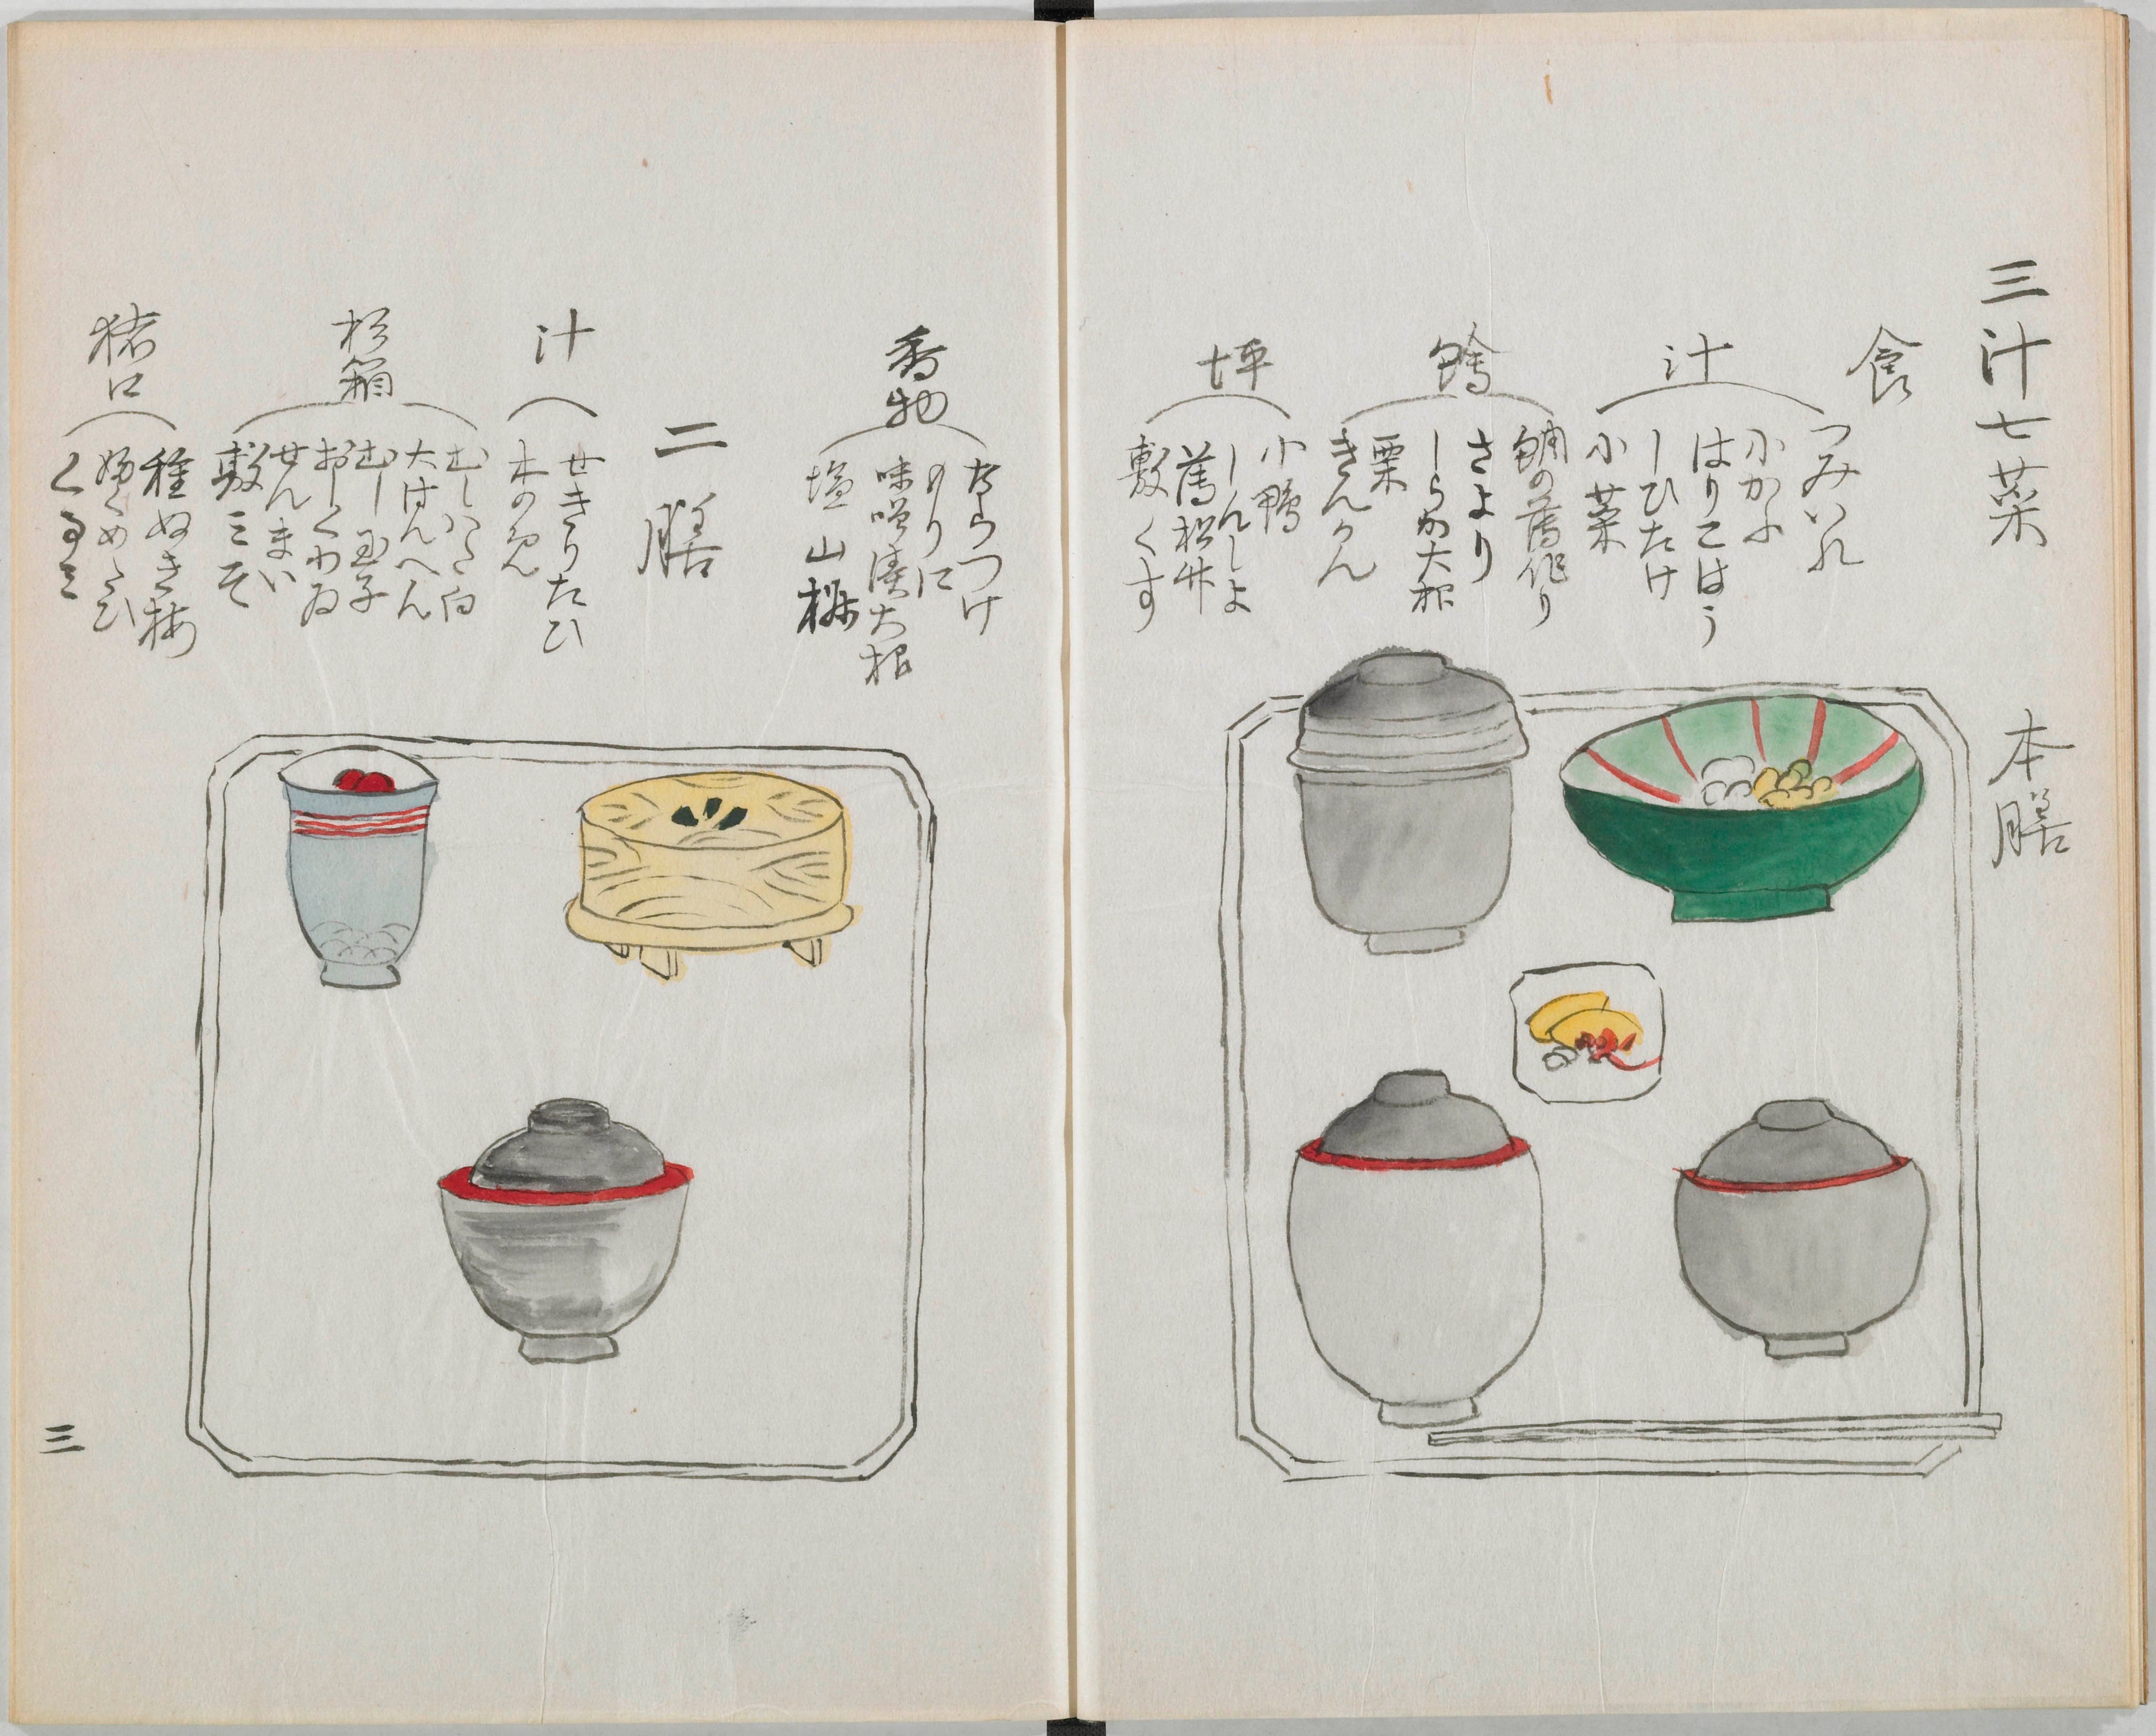 三汁七菜
食
汁
つみいれ
小かふ
はりこはう
しひたけ
小菜
鱠
鯛の薄作り
さより
しらが大根
栗
きんかん
坪
小鴨
しんしよ
薄松茸
敷くす
本膳
香物
ならつけ
もりに
味噌漬大根
塩山椒
二膳
汁
せきりたひ
木のめ
杉箱
むし
白
大はんへん
むし玉子
おしくわゐ
せんまい
敷みそ
猪口
種ぬき梅
くるミ
三